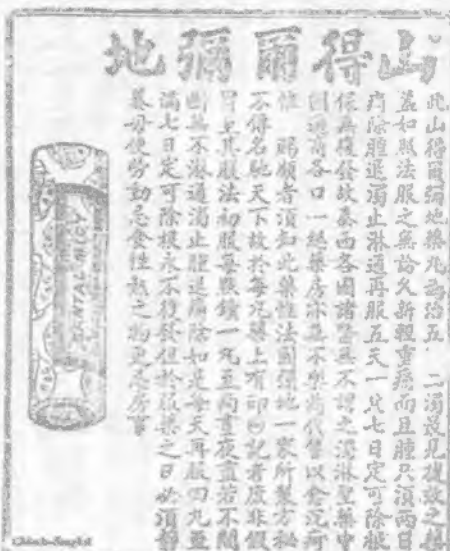 山得爾彌地
此山得爾彌地藥丸專治五 二濁及見提致之
如照法服之無論久新輕重痛而且腫只須兩日
痛除腫退濁止淋通再服五天一共七日定可除根
保無復發故泰西各國諸醫無不謂之 淋聖藥中
國通商各口一經藥房亦無不樂為代售以 沉疴
惟 賜顧者須知此藥惟法國彌地一家所製方秘
不傳名馳天下故於每丸藥上有印 記者庶非假
冒 其服法初服每點鐘一丸至兩晝夜直若不間
斷無不淋通濁止腫退痛除如是每天再服四丸至
滿七日定可除根永不復發但於服藥之日必須靜
養毋使勞動忌食性熱之物更忌房事
SANTAL MIDY